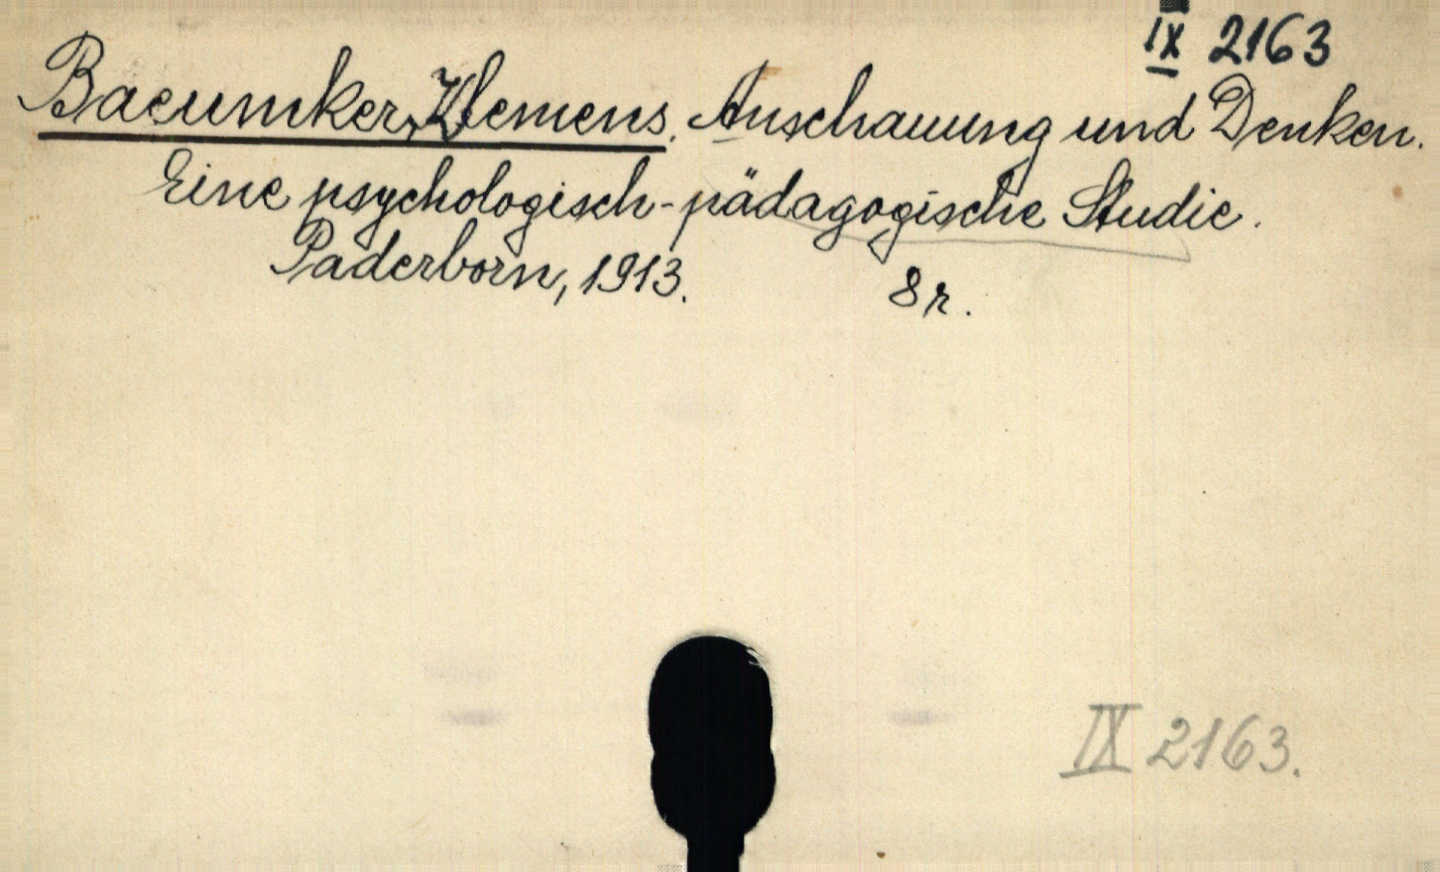 IX 2163
Baeumker, Klemens. Anschauung und Denken.
Eine psychologisch-pädagogische Studie.
Paderborn, 1913. 8r.
IX 2163.